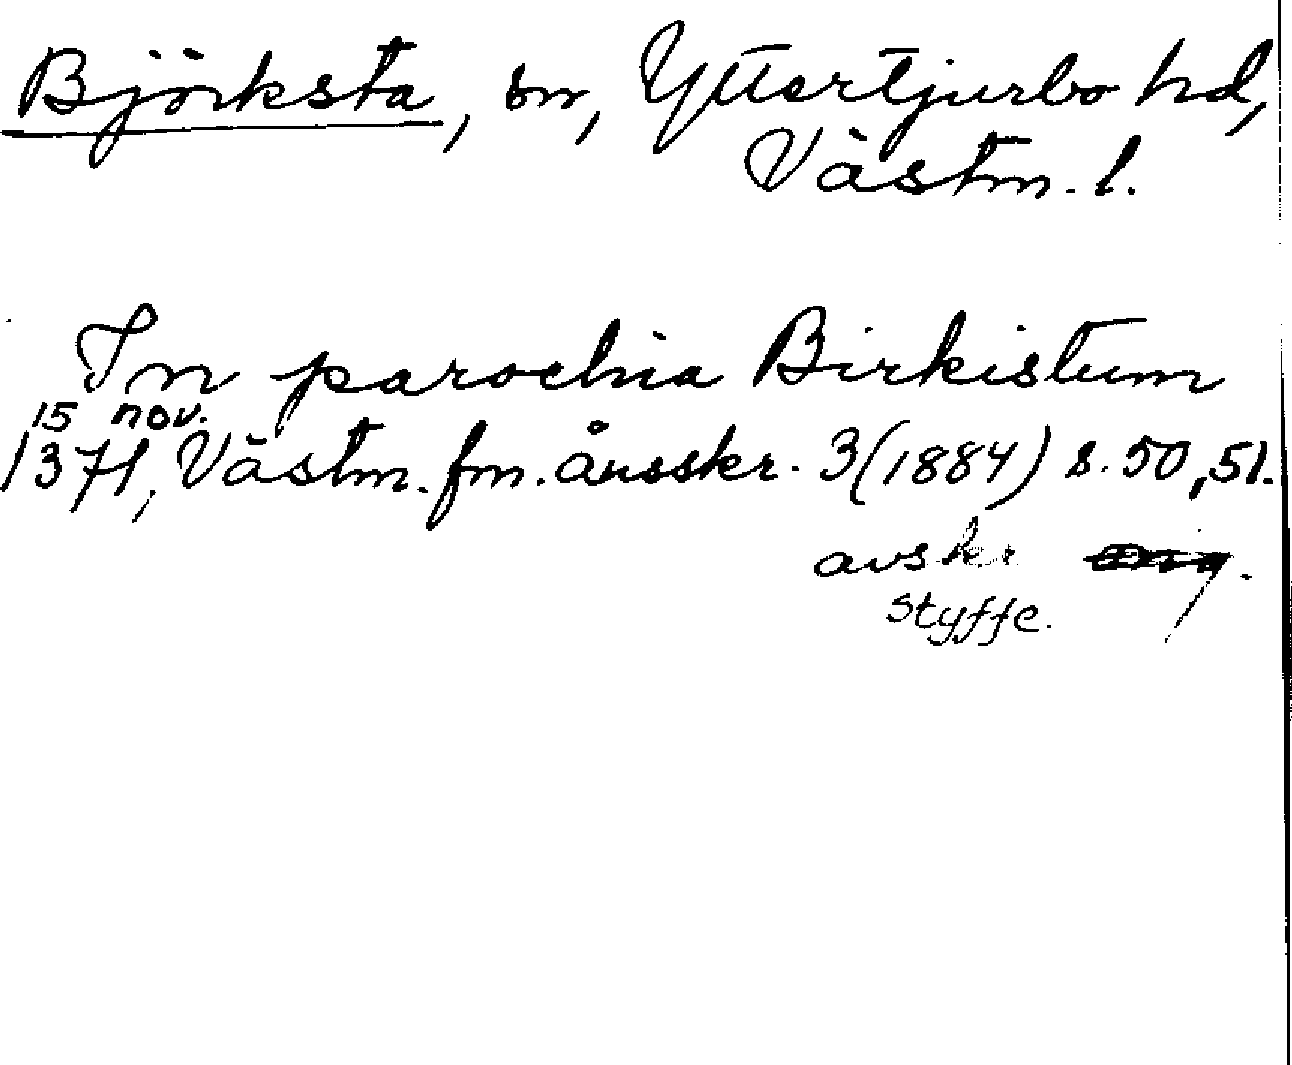 Björksta, sn, Yttertjurbo hd,
Västm. l.
In parochia Birkistum
15 nov.
1371, Västm. fm. årsskr. 3 (1884) s. 50, 51.
avskr orig.
Styffe.